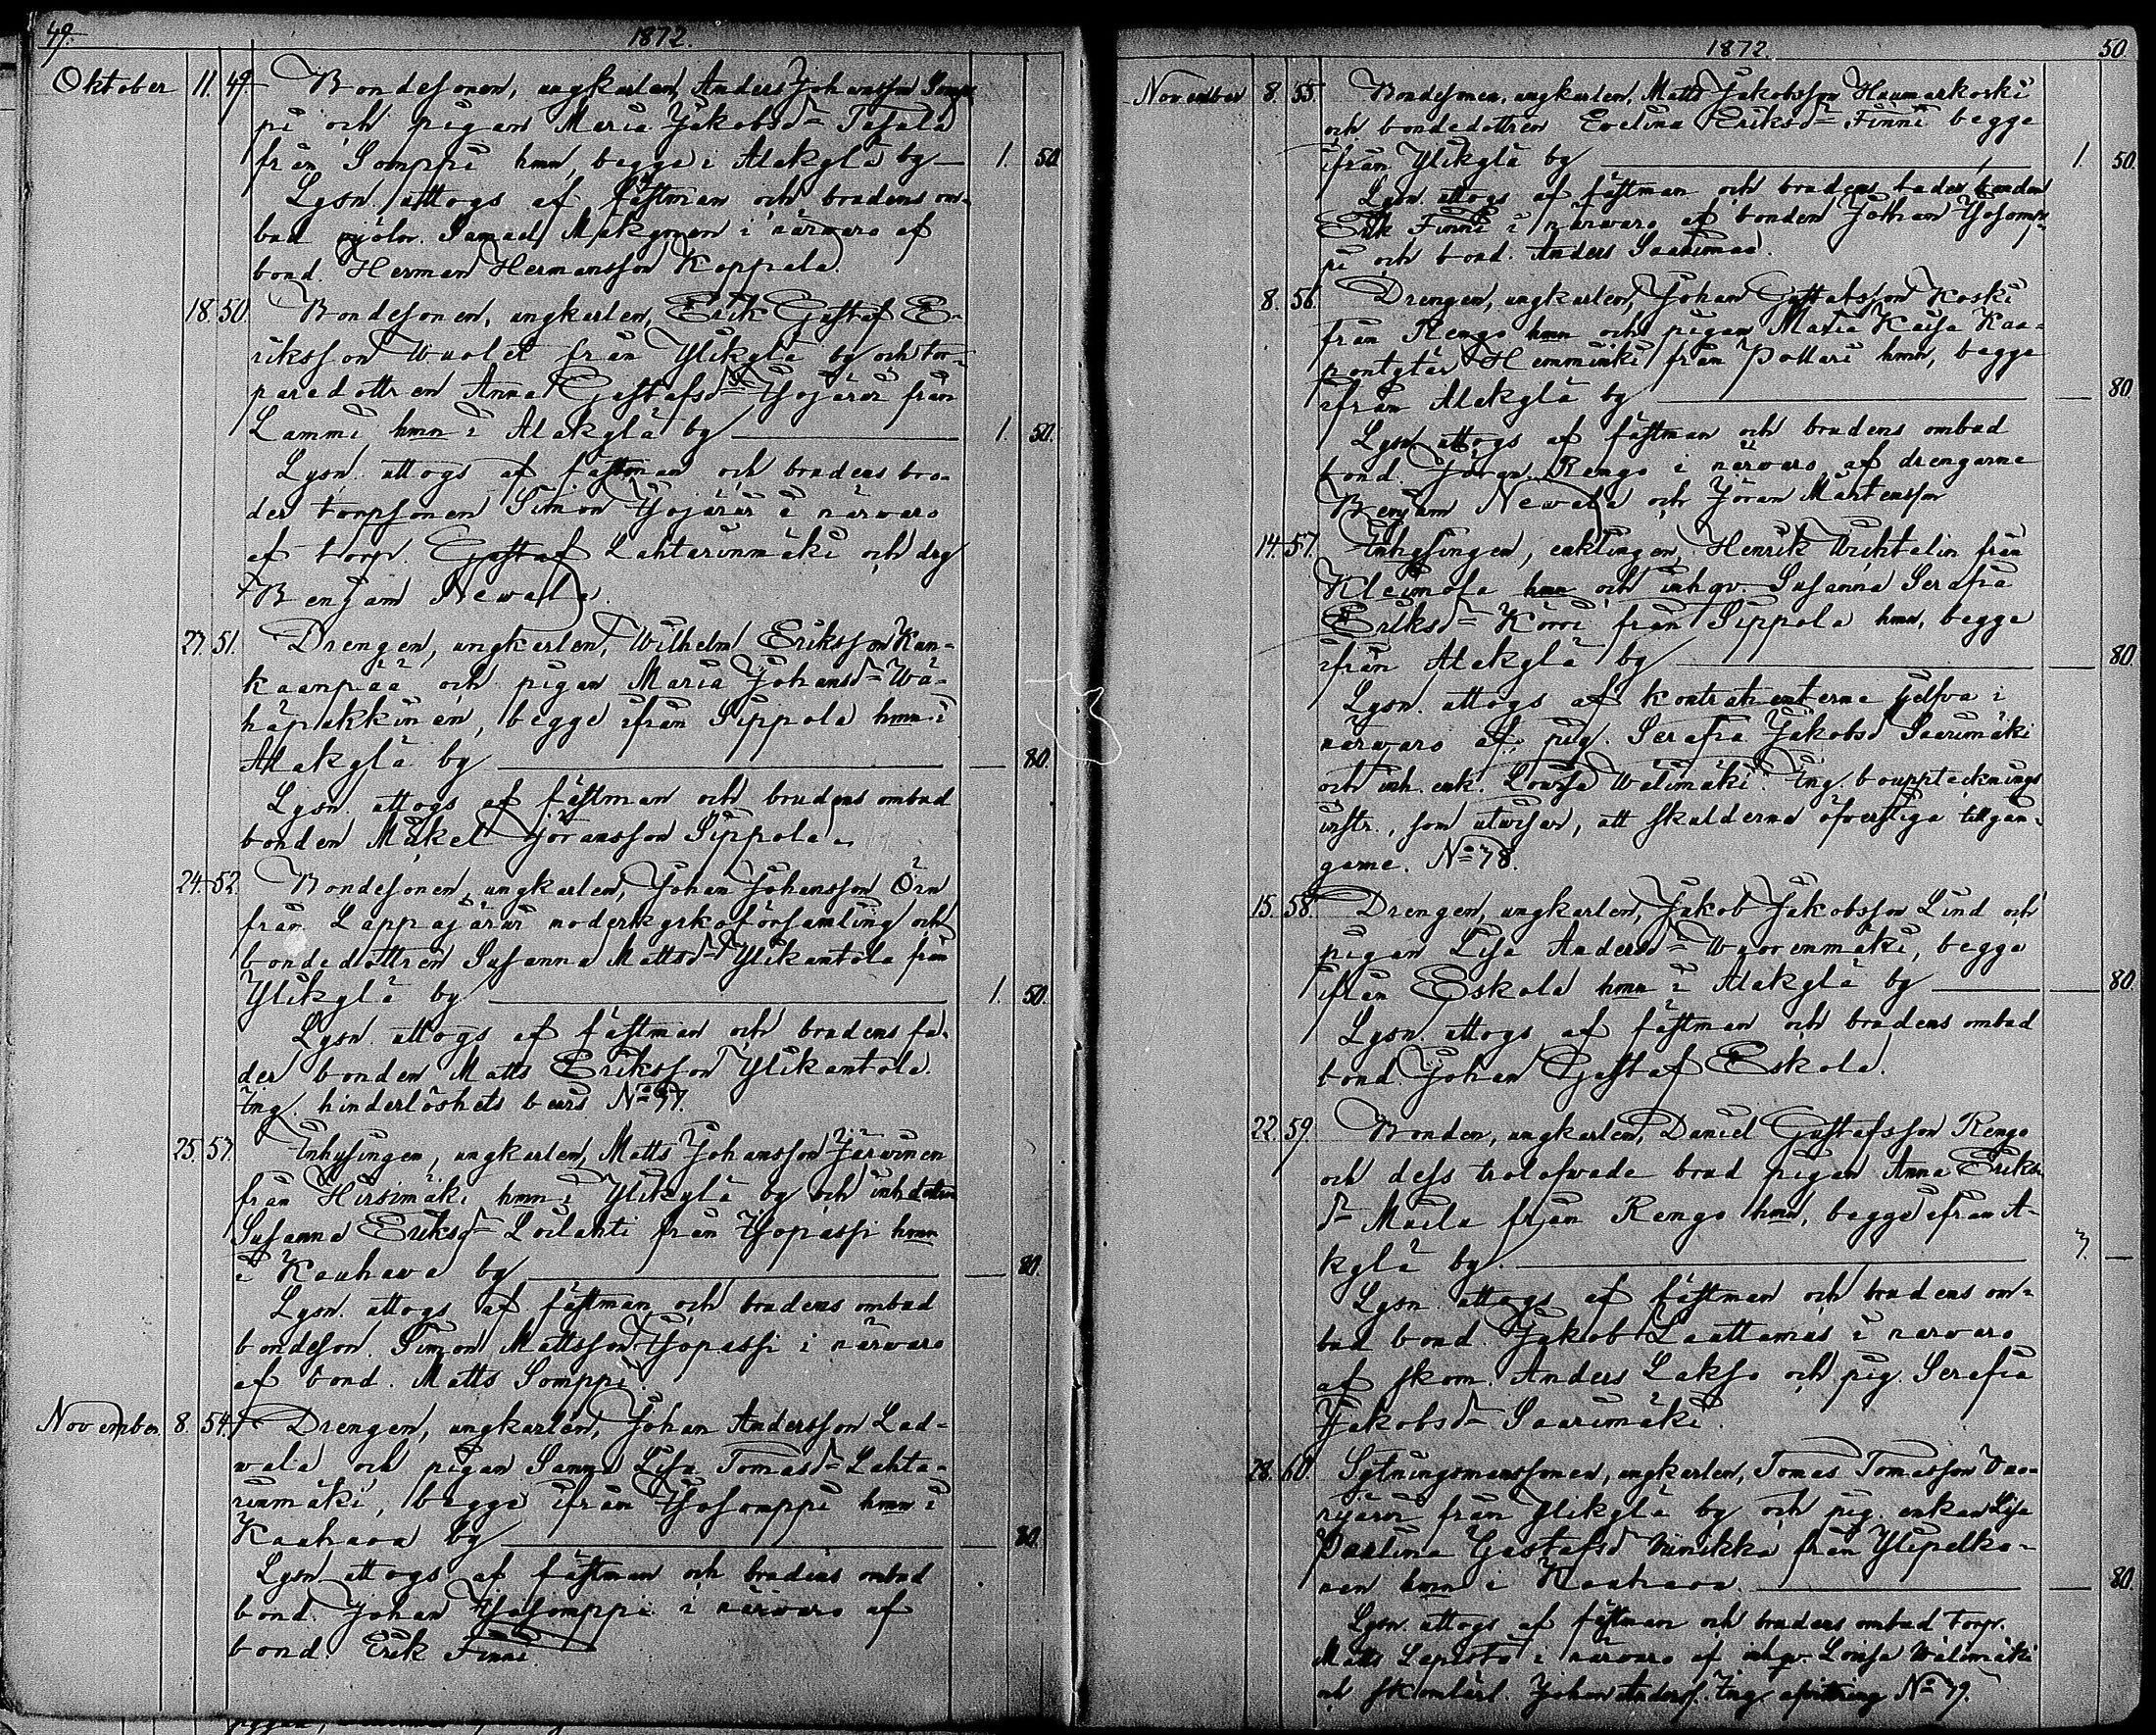 49. 1872.
Oktober 11. 49 Bondesonen, ungkarlen, Anders Johansson Somp-
pi och pigan Maria Jakobsd:r Tasala
från Somppi hmn, begge i Alakylä by — 1. 50.
Lysn. uttogs af fästman och brudens om-
bud mjöln. Samuel Mäkynen i närvaro af
bond. Herman Hermansson Koppala.
18. 50. Bondesonen, ungkarlen, Erik Gustaf E-
riksson Wuolet från Ylikylä by och tor-
paredottren Anna Gustafsd:r Isojärvi från
Lammi hmn i Alakylä by — 1. 50.
Lysn. uttogs af fästman och brudens bro-
der torpsonen Simon Isojärvi i närvaro
af torp. Gustaf Lahtarinmäki och drg
Benjam Newala.
27. 51. Drengen, ungkarlen, Wilhelm Eriksson Kan-
kaanpää och pigan Maria Johansd:r Wä-
häpakkinen, begge ifrån Sippola hmn i
Alakylä by — 80.
Lysn. uttogs af fästman och brudens ombud
bonden Mikel Jöransson Sippola.
24. 52. Bondesonen, ungkarlen, Johan Johansson Örn
från Lappajärvi moderkyrkoförsamling och
bondedottren Susanna Mattsd:r Ylikantola från
Ylikylä by — 1. 50.
Lysn. uttogs af fästman och brudens fa-
der bonden Matts Eriksson Ylikantola.
Ing. hinderlöshets bevis No 77.
25. 53. Inhysingen, ungkarlen, Matts Johansson Järvinen
från Hirsimäki hmn i Ylikylä by och inh dottren
Susanna Eriksd:r Loilahti från Isopassi hmn
i Kauhava by — 80.
Lysn. uttogs af fästman och brudens ombud
bondeson. Simon Mattsson Isopassi i närvaro
af bond. Matts Somppi.
November 8. 54. Drengen, ungkarlen, Johan Andersson Lad-
wala och pigan Sanna Lisa Tomasd:r Lahta-
rinmäki, begge ifrån Isosomppi hmn i
Kauhava by — 80.
Lysn. uttogs af fästman och brudens ombud
bond. Johan Isosomppi i närvaro af
bond. Erik Finni.
1872. 50.
November 8. 55. Bondesonen, ungkarlen, Matts Jakobsson Haumarkoski
och bondedottren Evelina Eriksd:r Finni begge
ifrån Ylikylä by — 1. 50.
Lysn. uttogs af fästman och brudens fader bonden
Erik Finni i närvaro af bonden Johan Isosomp-
pi och bond. Anders Saarimaa.
8. 56. Drengen, ungkarlen, Johan Gustafsson Koski
från Rengo hmn och pigan Maria Kaisa Kaa-
pontytär Hemminki från Pollari hmn, begge
ifrån Alakylä by — 80.
Lysn uttogs af fästman och brudens ombud
bond. Jöran Rengo i närvaro af drengarne
Benjam Newala och Jöran Mårtensson
14. 57. Inhysingen, enklingen, Henrik Wichtelin från
Kleimola hmn och inhqv. Susanna Serafia
Eriksd:r Körri från Sippola hmn, begge
ifrån Alakylä by — 80.
Lysn. uttogs af kontrahenterne sjelfva i
närvaro af pig. Serafia Jakobsd Saarimäki
och inh. enk. Lovisa Wälimäki. Ing. bouppteknings
instr., som utvisar, att skulderna öfverstiga tillgån-
garne. No 78.
15. 58. Drengen, ungkarlen, Jakob Jakobsson Lind och
pigan Lisa Andersd:r Wuorenmäki, begge
ifrån Eskola hmn i Alakylä by — 80.
Lysn. uttogs af fästman och brudens ombud
bond. Johan Gustaf Eskola.
22. 59. Bonden, ungkarlen, Daniel Gustafsson Rengo
och dess trolofvade brud pigan Anna Eriks-
d:r Muila från Rengo hmn, begge ifrån A-
kylä by. — 3. —
Lysn. uttogs af fästman och brudens om-
bud bond. Jakob Laattamus i närvaro
af skom. Anders Lakso och pig. Serafia
Jakobsd:r Saarimäki.
28. 60. Sytningsmanssonen, ungkarlen, Tomas Tomasson Vuo-
rijärvi från Ylikylä by och pig. enkan Lisa
Paulina Gustafsd Minikka från Ylipelko-
nen hmn i Kauhava. — 80.
Lysn. uttogs af fästman och brudens ombud torp.
Matts Lepistö i närvaro af inhqv. Lovisa Wälimäki
och skomlärl. Johan Anderss. Ing afvittring No 79.